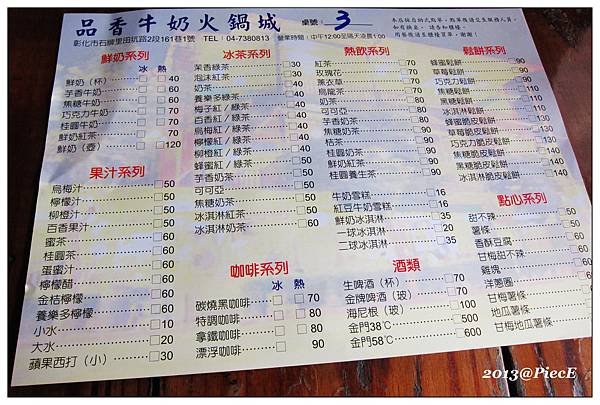 品香牛奶火鍋城 桌號: 3
彰化市石牌里田坑路2段161巷1號 TEL:04-7380813 營業時間:中午12:00至隔天凌晨1:00
本店採自助式點單,點單後請交至服務人員,
如有缺桌,請告知櫃檯。
用餐後請至櫃檯買單,謝謝!
鮮奶系列
冰 熱
鮮奶(杯) 40
芋香牛奶 60
焦糖牛奶 60
巧克力牛奶 60
桂圓牛奶 70
鮮奶紅茶 60
鮮奶(壺) 120
果汁系列
烏梅汁 50
檸檬汁 50
柳橙汁 50
百香果汁 50
蜜茶 50
桂圓茶 60
蛋蜜汁 60
檸檬醋 60
金桔檸檬 60
養樂多檸檬 60
小水 10
大水 20
蘋果西打(小) 30
冰茶系列
茉香綠茶 30
泡沫紅茶 30
奶茶 40
養樂多綠茶 40
梅子紅/綠茶 40
百香紅/綠茶 40
烏梅紅/綠茶 40
檸檬紅/綠茶 40
柳橙紅/綠茶 40
蜂蜜紅/綠茶 40
芋香奶茶 50
可可亞 50
焦糖奶茶 50
冰淇淋紅茶 50
冰淇淋奶茶 60
咖啡系列
冰 熱
碳燒黑咖啡 70
特調咖啡 80
拿鐵咖啡 80
漂浮咖啡 90
熱飲系列
紅茶 70
玫瑰花 70
薰衣草 70
烏龍茶 70
奶茶 70
可可亞 80
芋香奶茶 80
焦糖奶茶 80
桔茶 90
桂圓奶茶 90
鮮奶紅茶 90
桂圓養生茶 90
牛奶雪糕 16
紅豆牛奶雪糕 16
鮮奶冰淇淋 35
一球冰淇淋 20
二球冰淇淋 35
酒類
生啤酒(杯) 70
金牌啤酒(玻) 70
海尼根(玻) 100
金門38℃ 500
金門58℃ 600
鬆餅系列
蜂蜜鬆餅 90
草莓鬆餅 90
巧克力鬆餅 90
焦糖鬆餅 90
黑糖鬆餅 90
冰淇淋鬆餅 110
蜂蜜脆皮鬆餅 130
草莓脆皮鬆餅 130
巧克力脆皮鬆餅 130
焦糖脆皮鬆餅 130
黑糖脆皮鬆餅 140
冰淇淋脆皮鬆餅 140
點心系列
甜不辣 50
薯條 50
香酥豆腐 50
甘梅甜不辣 50
雞塊 50
洋蔥圈 60
甘梅薯條 60
地瓜薯條 50
甘梅地瓜薯條 50
2013@PiecE